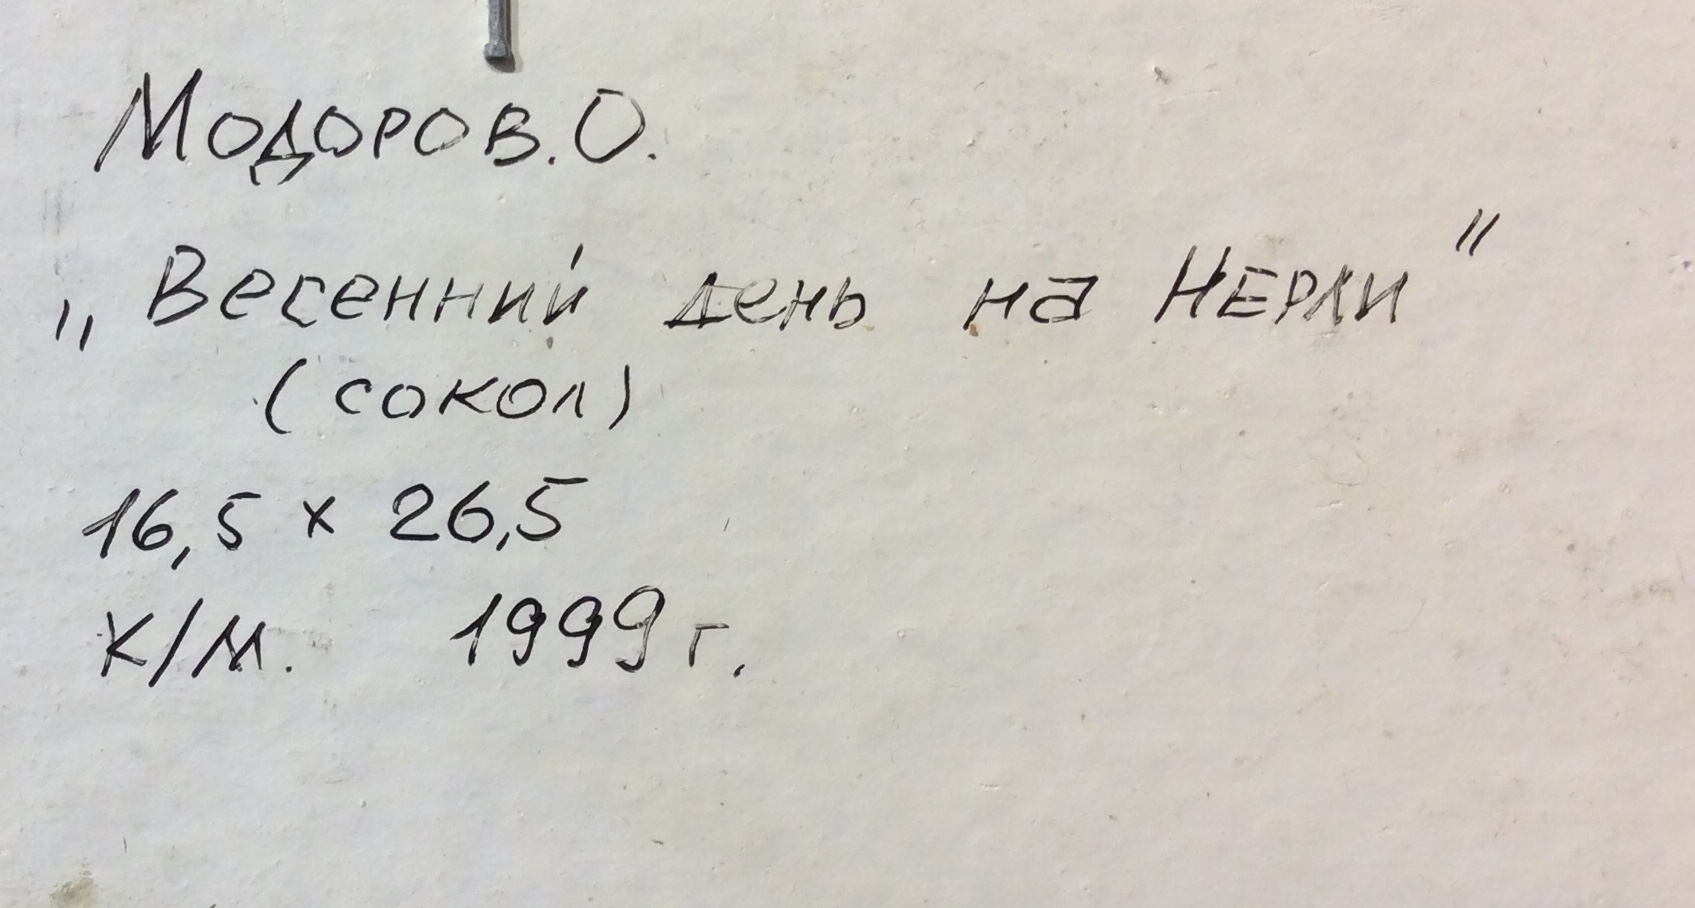 Модоров.О.
„Весенний день на Нерли"
(сокол)
16,5 x 26,5
К/М. 1999 г.